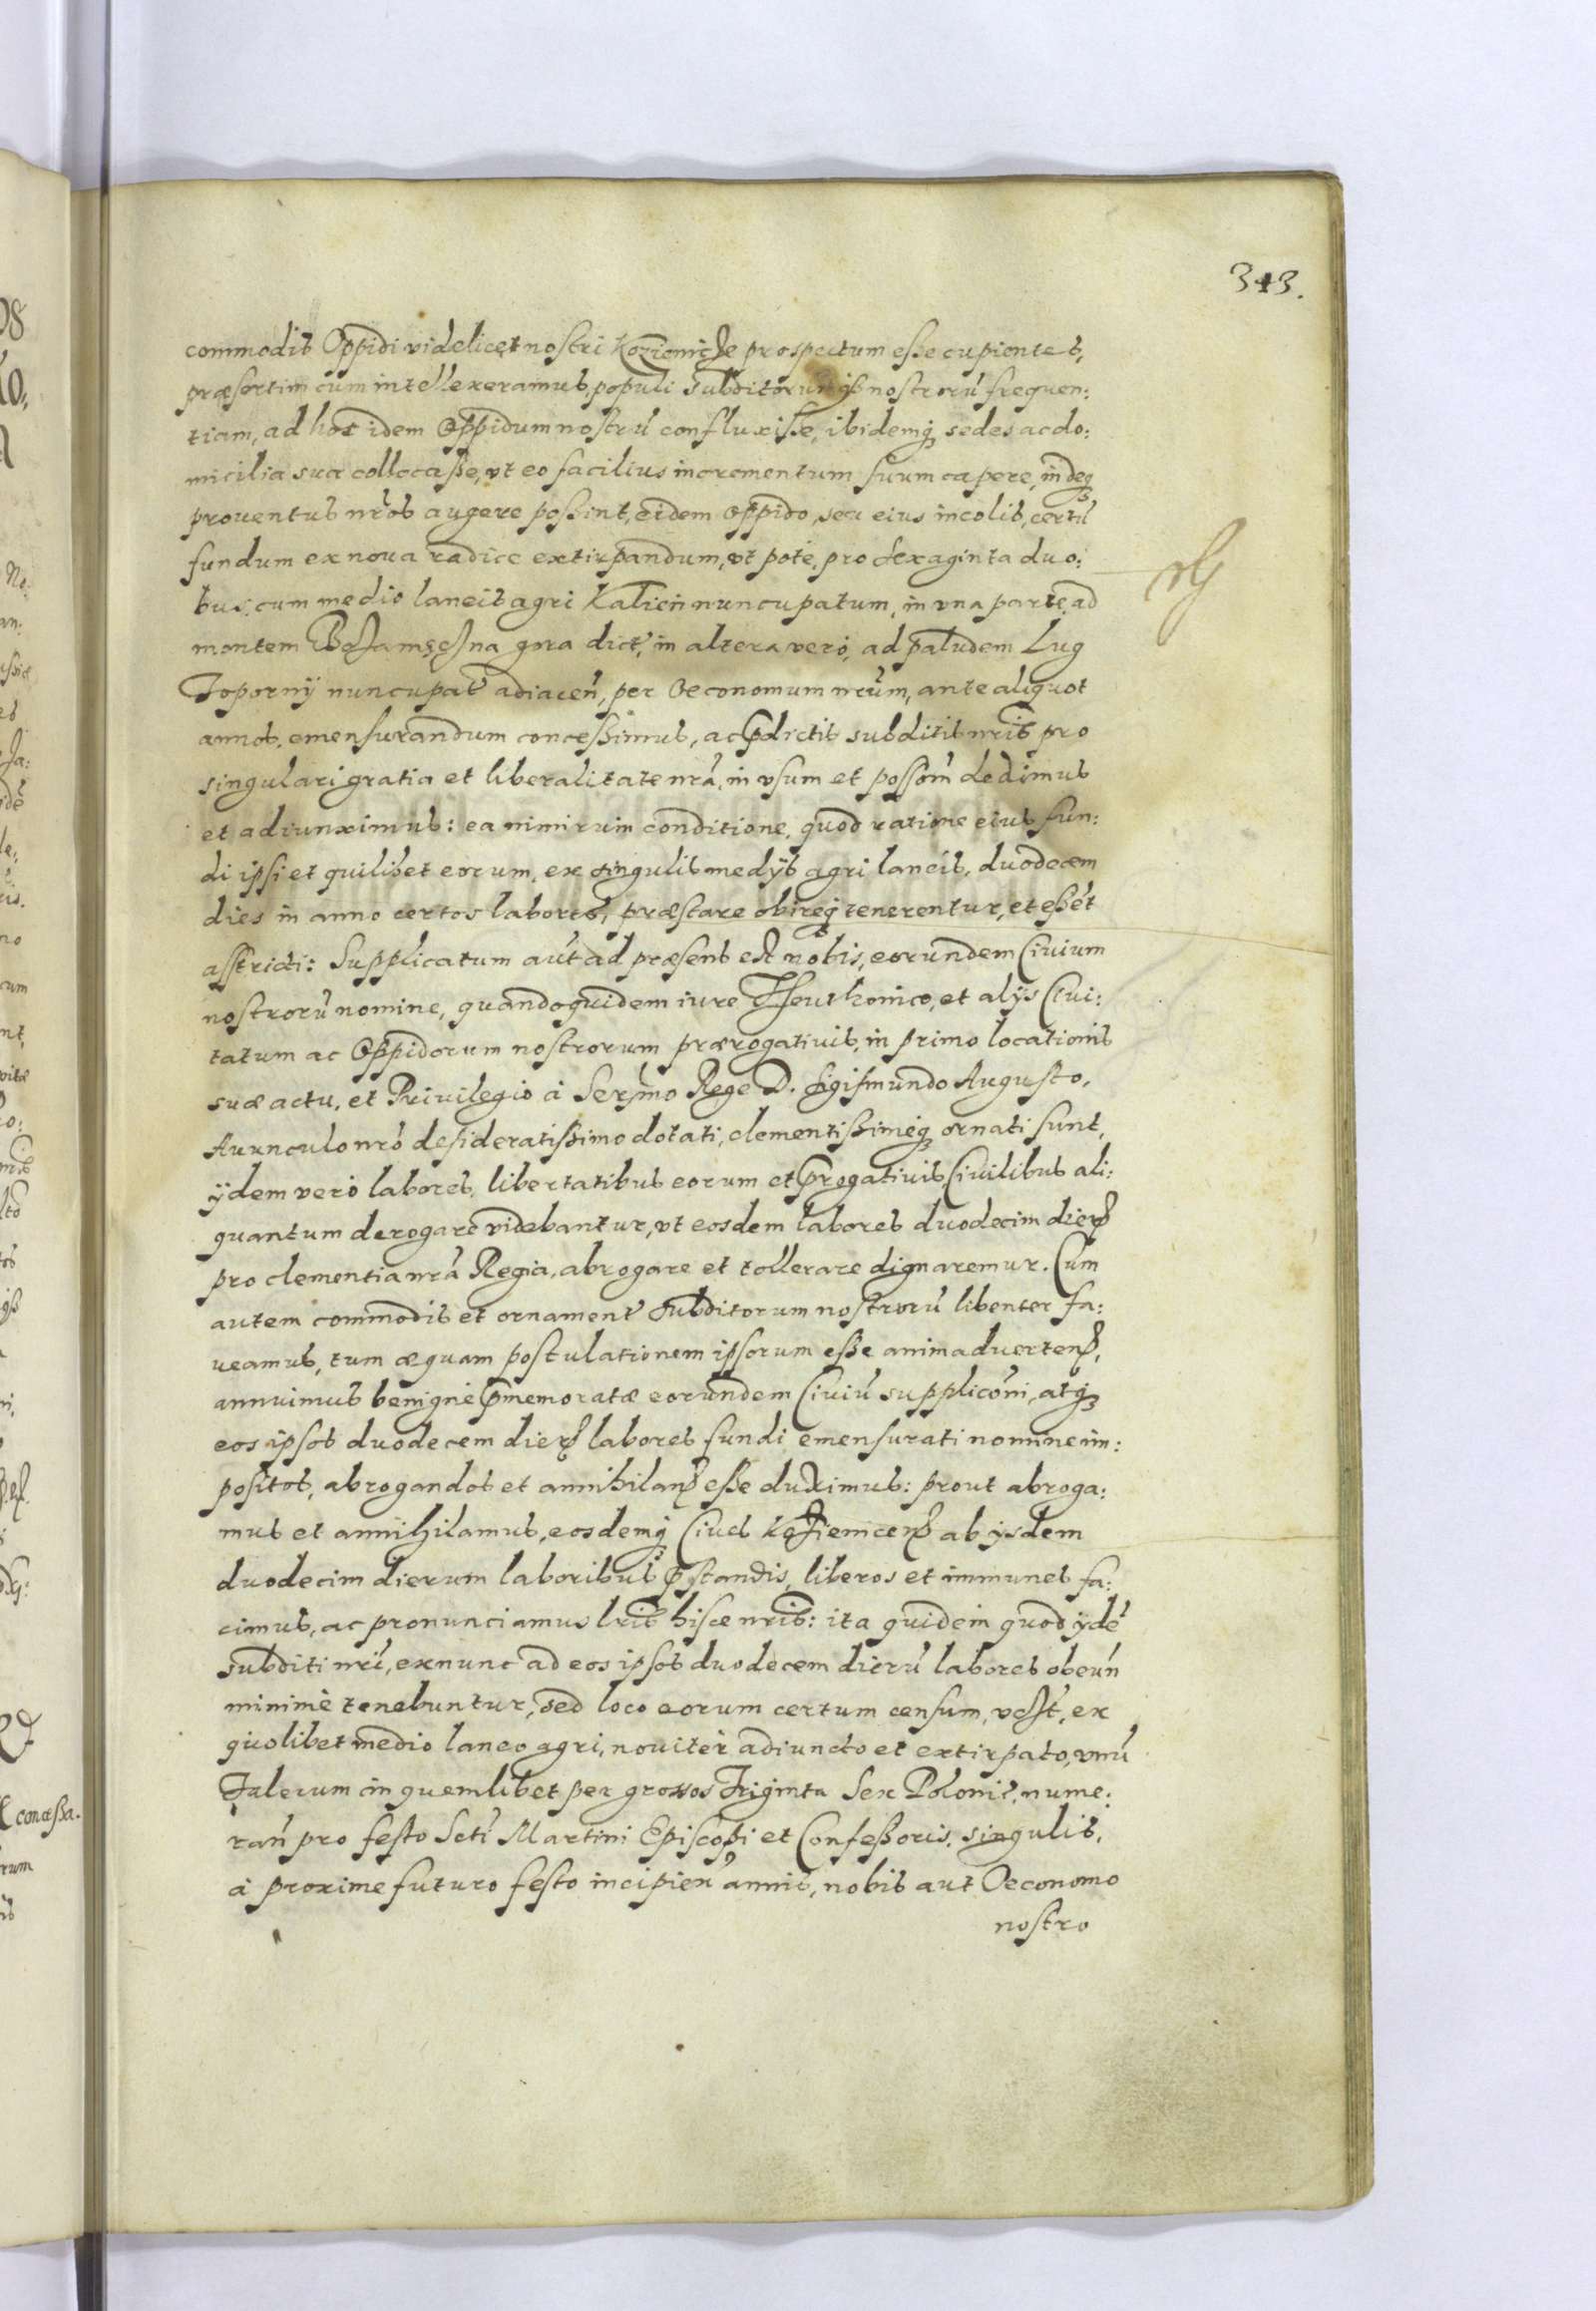 343.
commodis Oppidi videlicet nostri Kozienicze prospectum esse cupientes,
præsertim cum intellexeramus, populi subditorumq́3 nostrorũ frequen:
tiam, ad hoc idem Oppidum nostrũ confluxisse, ibidemq́3 sedes ac do:
micilia sua collocasse, vt eo facilius incrementum suum capere, indeq3
prouentus nr̃os augere possint, eidem Oppido, seu eius incolis, certũ
fundum ex noua radice extirpandum, vt pote, pro sexaginta duo:
bus, cum medio laneis agri Kalień nuncupatum, in vna parte, ad
montem gora dict̃, in altera verò, ad paludem Lug
Toporny nuncupat̃ adiaceñ, per Oeconomum nrũm, ante aliquot
annos, emensurandum concessimus, ac p̃dictis subditis nris pro
singulari gratia et liberalitate nrã, in vsum et posson̄em dedimus
et adiunximus: ea nimirum conditione, quod ratione eius fun:
di ipsi et quilibet eorum, ex singulis medÿs agri laneis, duodecem
dies in anno certos labores, præstare obireq́3 tenerentur, et essẽt
astricti: Supplicatum aũt ad præsens est nobis, eorundem Ciuium
nostrorũ nomine, quandoquidem iure Theuthonico, et alÿs Ciui:
tatum ac Oppidorum nostrorum prærogatiuis, in primo locationis
suæ actu, et Priuilegio à Serm̃o Rege D. Sigismundo Augusto,
Auunculo nr̃o desideratissimo dotati, clementissimeq́3 ornati sunt,
ÿdem verò labores, libertatibus eorum et p̃rogatiuis Ciuilibus ali:
quantum derogare videbantur, vt eosdem labores duodecim dierꝝ
pro clementia nrã Regia, abrogare et tollerare dignaremur. Cum
autem commodis et ornament̃ subditorum nostrorũ libenter fa:
ueamus, tum æquam postulationem ipsorum esse animaduerteñ,
annuimus benignè p̃memoratæ eorundem Ciuiũ supplicõni, atq́3
eos ipsos duodecem dierꝝ labores fundi emensurati nomine im:
positos, abrogandos et annihilanꝝ esse duximus: prout abroga:
mus et annihilamus, eosdemq́3 Ciues Kozieniceñ ab ÿsdem
duodecim dierum laboribus p̃standis, liberos et immunes fa:
cimus, ac pronunciamus lris hisce nris: ita quidem quod ÿdẽ
subditi nrĩ, ex nunc ad eos ipsos duodecem dierũ labores obeuñ
minimè tenebuntur, sed loco eorum certum censum, vcz̃t, ex
quolibet medio laneo agri, nouiter adiuncto et extirpato, vnũ
Talerum in quemlibet per grossos Triginta Sex Polonic̃, nume:
rañ pro festo Sctĩ Martini Episcopi et Confessoris, singulis,
à proxime futuro festo incipieñ annis, nobis aut Oeconomo
nostro